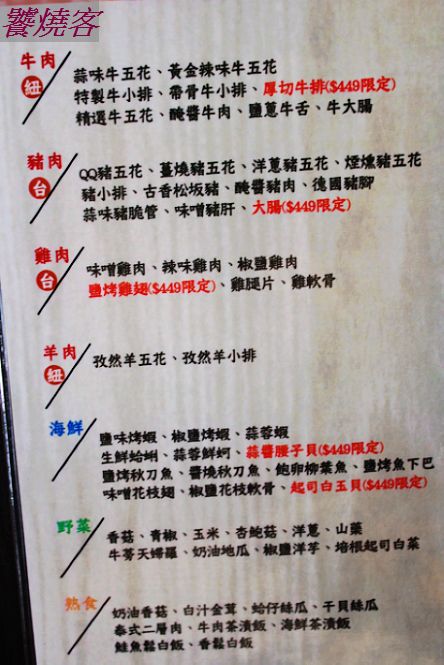 饕燒客
牛肉
紐
蒜味牛五花、黃金辣味牛五花
特製牛小排、帶骨牛小排、厚切牛排($449限定)
精選牛五花、醃醬牛肉、鹽蔥牛舌、牛大腸
豬肉
台
QQ豬五花、薑燒豬五花、洋蔥豬五花、煙燻豬五花
豬小排、古香松坂豬、醃醬豬肉、德國豬腳
蒜味豬脆管、味噌豬肝、大腸($449限定)
雞肉
台
味噌雞肉、辣味雞肉、椒鹽雞肉
鹽烤雞翅($449限定)、雞腿片、雞軟骨
羊肉
紐
孜然羊五花、孜然羊小排
海鮮
鹽味烤蝦、椒鹽烤蝦、蒜蓉蝦
生鮮蛤蜊、蒜蓉鮮蚵、蒜醬腰子貝($449限定)
鹽烤秋刀魚、醬燒秋刀魚、飽卵柳葉魚、鹽烤魚下巴
味噌花枝翅、椒鹽花枝軟骨、起司白玉貝($449限定)
野菜
香菇、青椒、玉米、杏鮑菇、洋蔥、山藥
牛蒡天婦羅、奶油地瓜、椒鹽洋芋、培根起司白菜
熟食
奶油香菇、白汁金茸、蛤仔絲瓜、干貝絲瓜
泰式二層肉、牛肉茶漬飯、海鮮茶漬飯
鮭魚鬆白飯、香鬆白飯